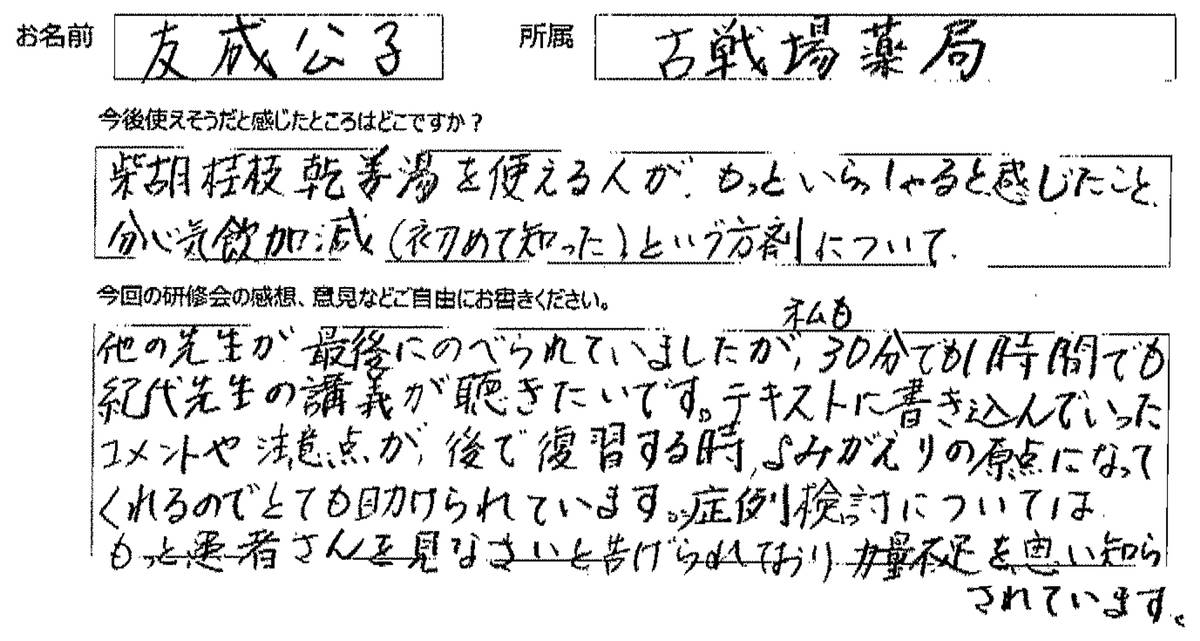 お名前 友成公子 所属 古戦場薬局
今後使えそうだと感じたところはどこですか?
柴胡桂枝乾姜湯を使える人が、もっといらっしゃると感じたこと、
分心気飲加減(初めて知った)という方剤について、
今回の研修会の感想、意見などご自由にお書きください。
私も
他の先生が最後にのべられていましたが、30分でも1時間でも
紀代先生の講義が聴きたいです。テキストに書き込んでいった
コメントや注意点が、後で復習する時、よみがえりの原点になって
くれるのでとても助けられています。症例検討については
もっと患者さんを見なさいと告げられており力量不足を思い知ら
されています。